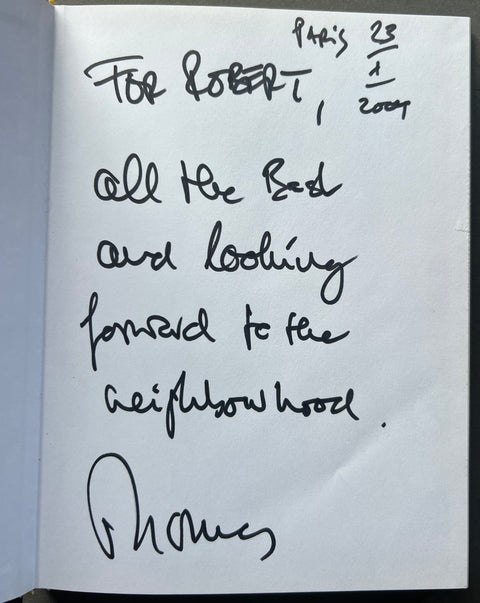 PARIS 23
1
2004
FOR ROBERT,
all the Best
and looking
forward to the
neighbourhood.
Thomas